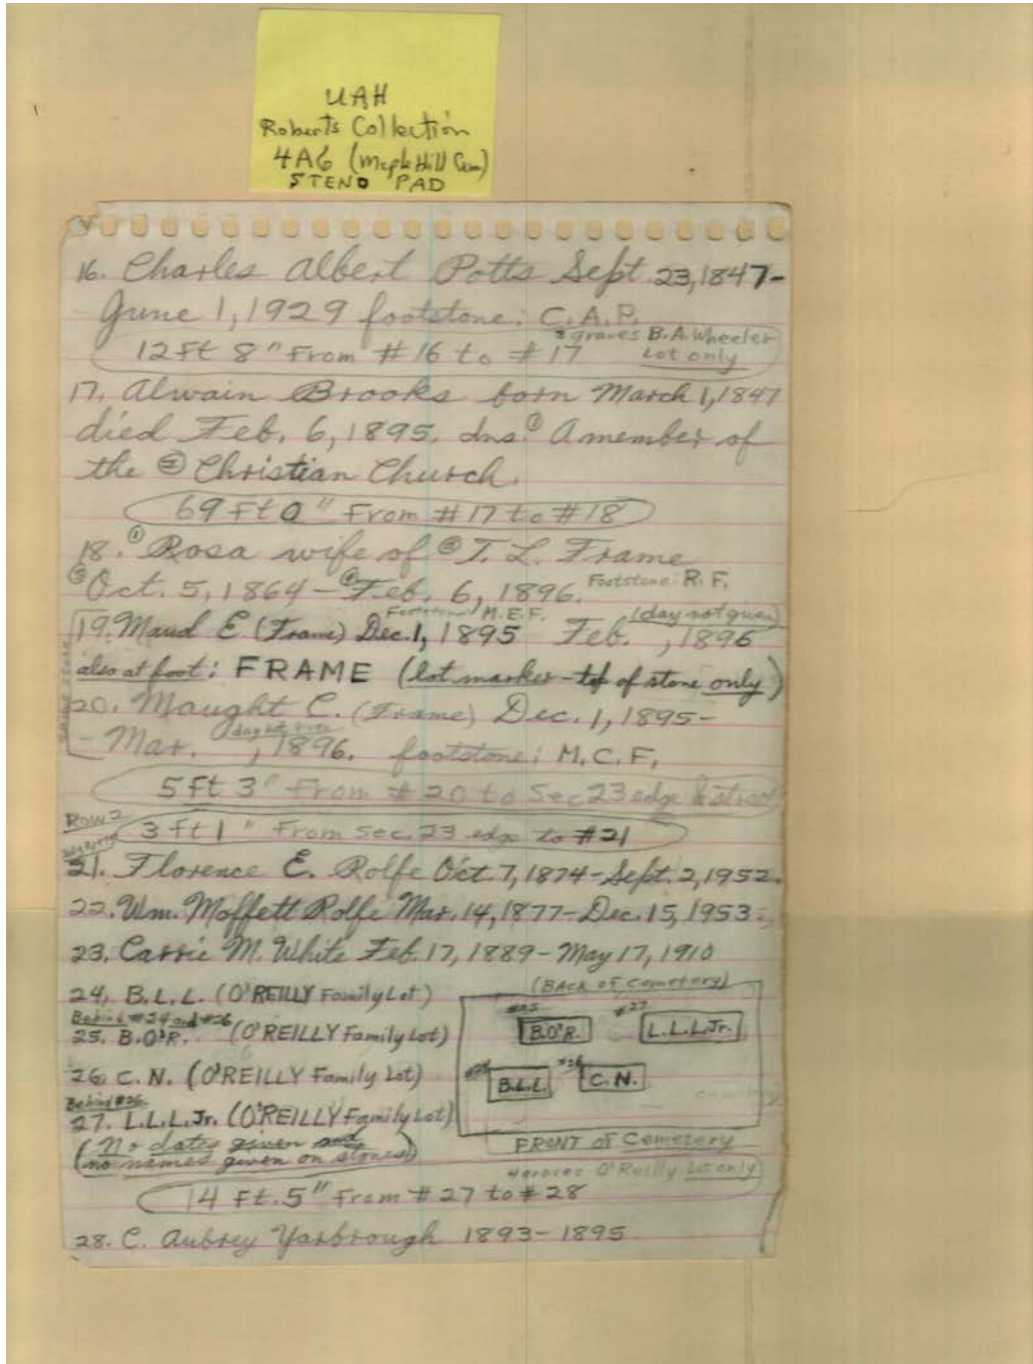 UAH
Roberts Collection
4A6 (Maple Hill Cem)
STENO PAD
16. Charles Albert Potts Sept. 23, 1847-
June 1, 1929 footstone: C.A.P.
graves B.A. Wheeler
12 Ft 8" From #16 to #17 Lot only
17. Alwain Brooks born March 1, 1847
died Feb. 6, 1895. Ins. ① A member of
the ② Christian Church.
69 Ft 0" From #17 to #18
18. ① Rosa wife of ② T. L. Frame
③ Oct. 5, 1864 - ④ Feb. 6, 1896. Footstone: R. F.
Footstone: M.E.F. (day not given)
19. Maud E. (Frame) Dec. 1, 1895 Feb. , 1896
also at foot: FRAME (lot marker - top of stone only)
20. Maught C. (Frame) Dec. 1, 1895-
day not given
- Mar. , 1896. footstone: M.C.F.
5 Ft 3" From #20 to Sec 23 edge & street
Row 2
3 ft 1" From Sec. 23 edge to #21
21. Florence E. Rolfe Oct. 7, 1874 - Sept. 2, 1952.
22. Wm. Moffett Rolfe Mar. 14, 1877 - Dec. 15, 1953.
23. Carrie M. White Feb. 17, 1889 - May 17, 1910
24. B.L.L. (O'REILLY Family Lot)
Behind #24 and #26
25. B.O'R. (O'REILLY Family Lot)
26. C. N. (O'REILLY Family Lot)
Behind #26
27. L.L.L. Jr. (O'REILLY Family Lot)
(No dates given and
no names given on stones)
(BACK OF Cemetery)
#25 #27
B.O'R. L.L.L. Jr.
#24 #26
B.L.L. C. N.
FRONT OF Cemetery
4 graves O'Reilly Lot only
14 Ft. 5" From #27 to #28
28. C. Aubrey Yarbrough 1893-1895